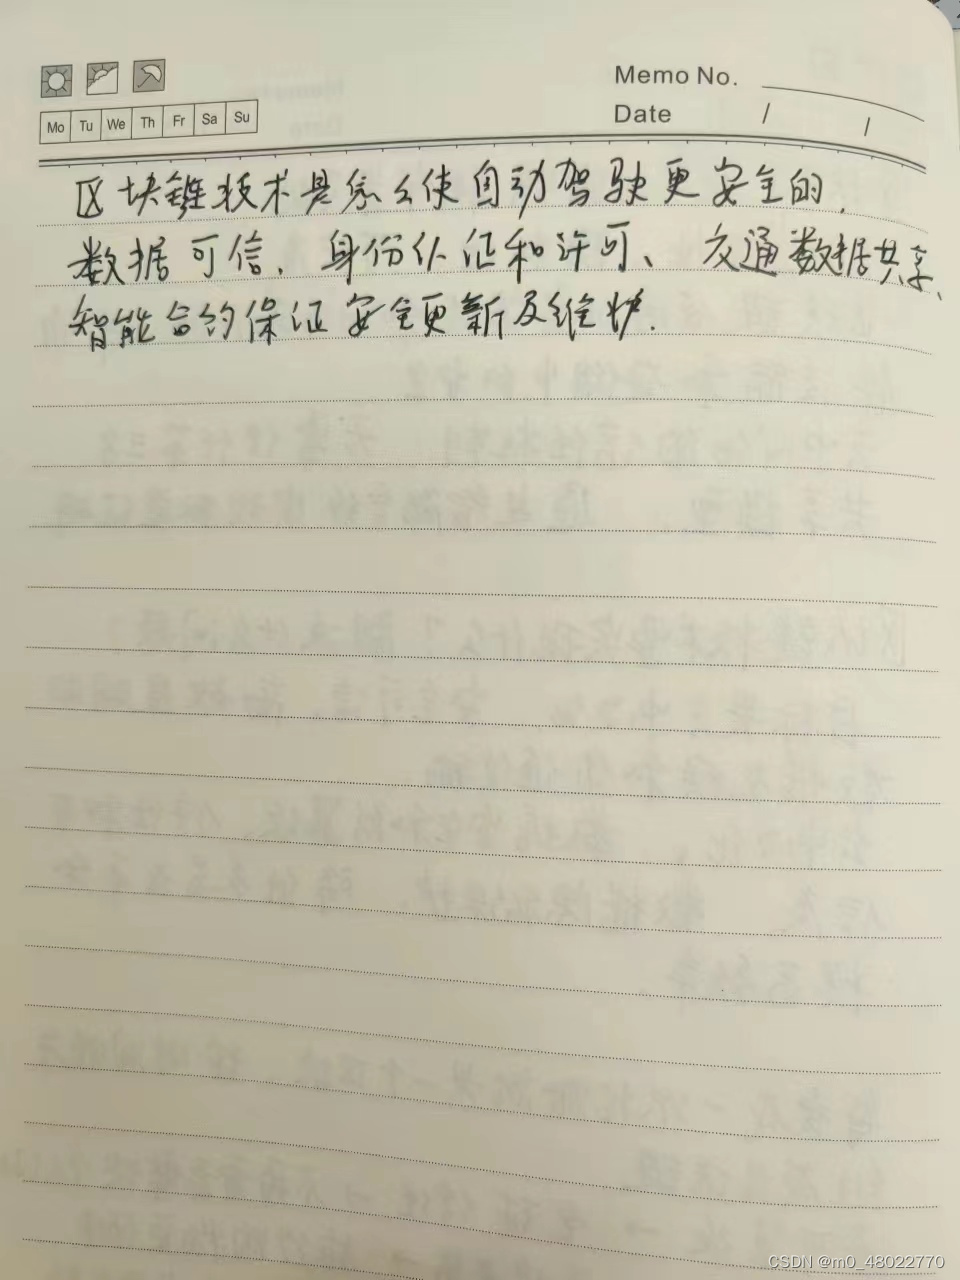 Memo No.
Date / /
Mo Tu We Th Fr Sa Su
区块链技术是怎么使自动驾驶更安全的.
数据可信、身份认证和许可、交通数据共享、
智能合约保证安全更新及维护.
CSDN @m0_48022770